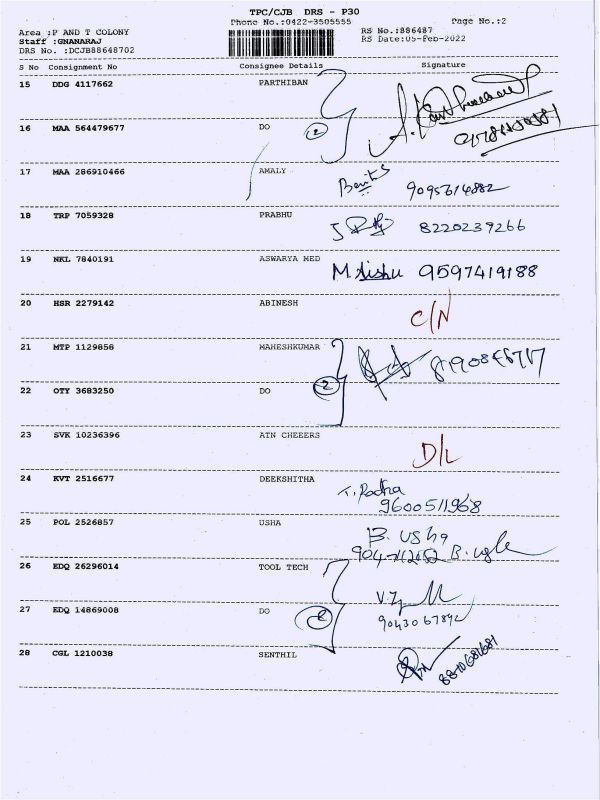 TPC/CJB DRS - P30
Phone No.:0422-3505555
Page No.:2
Area :P AND T COLONY
RS No.:886487
Staff :GNANARAJ
RS Date:05-Feb-2022
DRS No. :DCJB88648702
S No Consignment No Consignee Details Signature
15 DDG 4117662 PARTHIBAN
16 MAA 564479677 DO 2
17 MAA 286910466 AMALY 9095614882
18 TRP 7059328 PRABHU 8220239266
19 NKL 7840191 ASWARYA MED M. Aishu 9597419188
20 HSR 2279142 ABINESH C/N
21 MTP 1129858 MAHESHKUMAR
22 OTY 3683250 DO 2
23 SVK 10236396 ATN CHEEERS D/L
24 KVT 2516677 DEEKSHITHA T. Radha
9600511968
25 POL 2526857 USHA B. Usha
26 EDQ 26296014 TOOL TECH
27 EDQ 14869008 DO 2 9043067892
28 CGL 1210038 SENTHIL